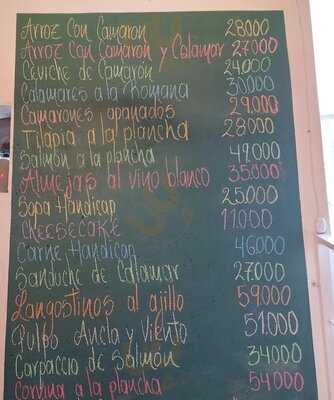 Arroz Con Camaron 28.000
Arroz Con Camaron y Calamar 27.000
Ceviche de Camarón 24.000
Calamares a la Romana 30.000
Camarones apanados 29.000
Tilapia a la plancha 28.000
Salmón a la plancha 49.000
Almejas al vino blanco 35.000
Sopa Handicap 25.000
CHEESECAKE 11.000
Carne Handicap 46.000
Sanduche de Calamar 27.000
Langostinos al ajillo 59.000
Pulpo Ancla y Viento 51.000
Carpaccio de Salmón 34000
Corvina a la plancha 54000